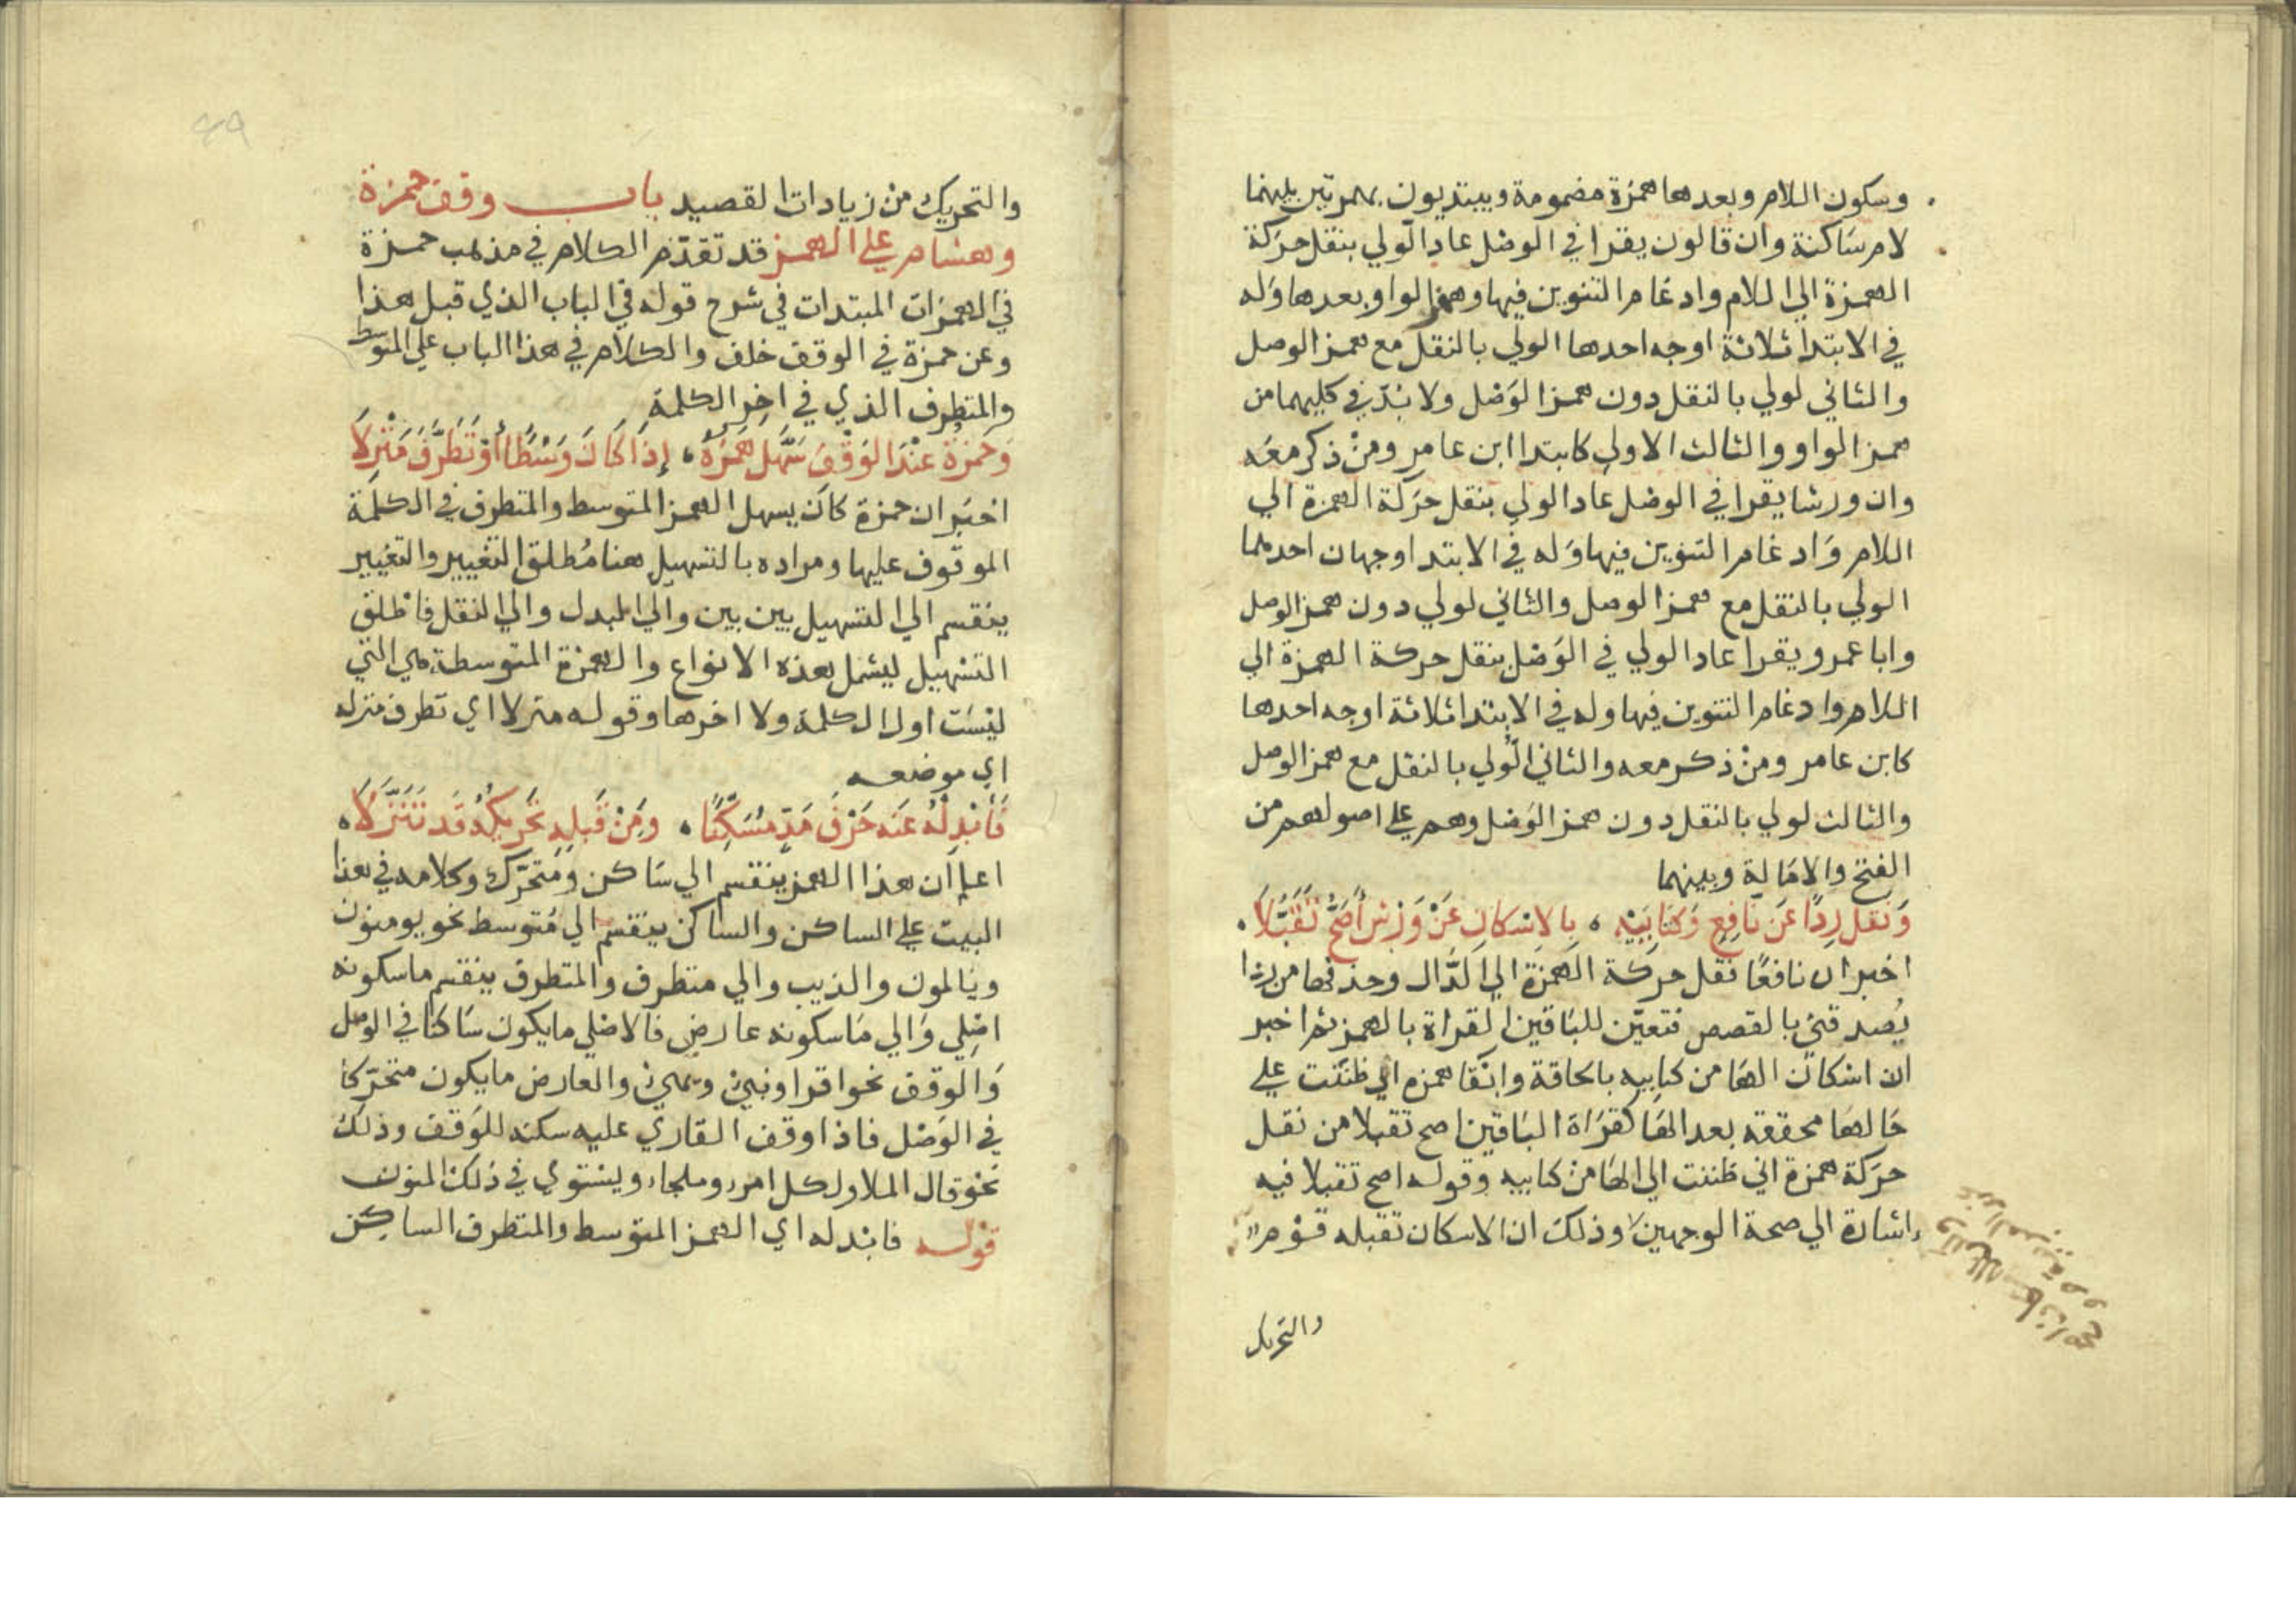 وسكون اللام وبعدها همزة مضمومة ويبتديون بهمزتين بينهما
لام ساكنة وان قالون يقرا في الوصل عاد الولي بنقل حركة
الهمزة الي اللام وادغام التنوين فيها وهمز الواو بعدها وله
في الابتدا ثلاثة اوجه احدها الولي بالنقل مع همز الوصل
والثاني لولي بالنقل دون همز الوصل ولا بد في كليهما من
همز الواو والثالث الاولي كابتدا ابن عامر ومن ذكر معه
وان ورشا يقرا في الوصل عاد الولي بنقل حركة الهمزة الي
اللام وادغام التنوين فيها وله في الابتدا وجهان احدهما
الولي بالنقل مع همز الوصل والثاني لولي دون همز الوصل
وابا عمرو يقرا عاد الولي في الوصل بنقل حركة الهمزة الي
اللام وادغام التنوين فيها وله في الابتدا ثلاثة اوجه احدها
كابن عامر ومن ذكر معه والثاني الولي بالنقل مع همز الوصل
والثالث لولي بالنقل دون همز الوصل وهم علي اصولهم من
الفتح والامالة وبينهما
وَنَقل رِدًا عَن نَافِعٍ وَكِتَابِيَه ، بِالاسْكَانِ عَنْ وَرْشٍ أَصَحُّ تَقَبُّلَا .
اخبر ان نافعًا نقل حركة الهمزة الي الدّال وحذفها من ردا
يُصدقني بالقصص فتعيّن للباقين القراة بالهمز ثم اخبر
ان اسكان الها من كتابيه بالحاقة وابقا همزه اني ظننت علي
حالها محققه بعد الها كقراة الباقين اصح تقبلا من نقل
حركة همزة اني ظننت الي الها من كتابيه وقوله اصح تقبلا فيه
اشارة الي صحة الوجهين وذلك ان الاسكان تقبله قوم
والتحريك
والتحريك من زيادات القصيد باب وقف حمزة
وهشام علي الهمز قد تقدّم الكلام في مذهب حمزة
في الهمزات المبتدات في شرح قوله في الباب الذي قبل هذا
وعن حمزة في الوقف خلف والكلام في هذا الباب علي المتوسط
والمتطرف الذي في اخر الكلمة
وَحَمْزَةُ عِنْدَ الوَقْفِ سَهَّلَ هَمْزَهُ ، إِذَا كَانَ وَسْطًا أَوْ تَطَرَّفَ مَنْزِلَا
اخبر ان حمزة كان يسهل الهمز المتوسط والمتطرف في الكلمة
الموقوف عليها ومراده بالتسهيل هنا مُطلق التغيير والتغيير
ينقسم الي التسهيل بين بين والي البدل والي النقل فاطلق
التسهيل ليشمل هذه الانواع والهمزة المتوسطة هي التي
ليست اول الكلمة ولا اخرها وقوله منزلا اي تطرف منزله
اي موضعه
فَأَبْدِلْهُ عَنْه حَرْفَ مَدٍّ مُسَكِّنًا ، ومِنْ قَبلِه تَحْرِيكُهُ قَد تَنَزَّلَا ،
اعلم ان هذا الهمز ينقسم الي ساكن ومتحرّك وكلامه في هذا
البيت علي الساكن والساكن ينقسم الي مُتوسط نحو يومنون
ويالمون والذيب والي متطرف والمتطرف ينقسم ماسكونه
اصلي والي ماسكونه عارض فالاصلي مايكون ساكنا في الوصل
والوقف نحو اقرا ونبي ويهي والعارض مايكون متحرّكا
في الوصل فاذا وقف القاري عليه سكنه للوقف وذلك
نحو قال الملا ولكل امرء وملجاء ويستوي في ذلك المنون
قوله فابدله اي الهمز المتوسط والمتطرف الساكن